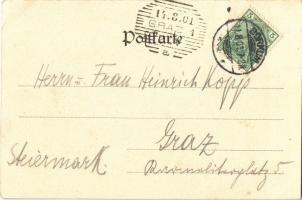 14.8.01
GRAZ
Postkarte
Herrn u. Frau Heinrich Kopp
Graz
Steiermark.
Karmeliterplatz 5